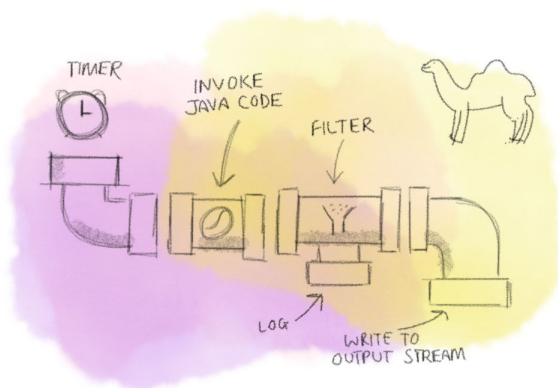 TIMER
INVOKE
JAVA CODE
FILTER
LOG
WRITE TO
OUTPUT STREAM